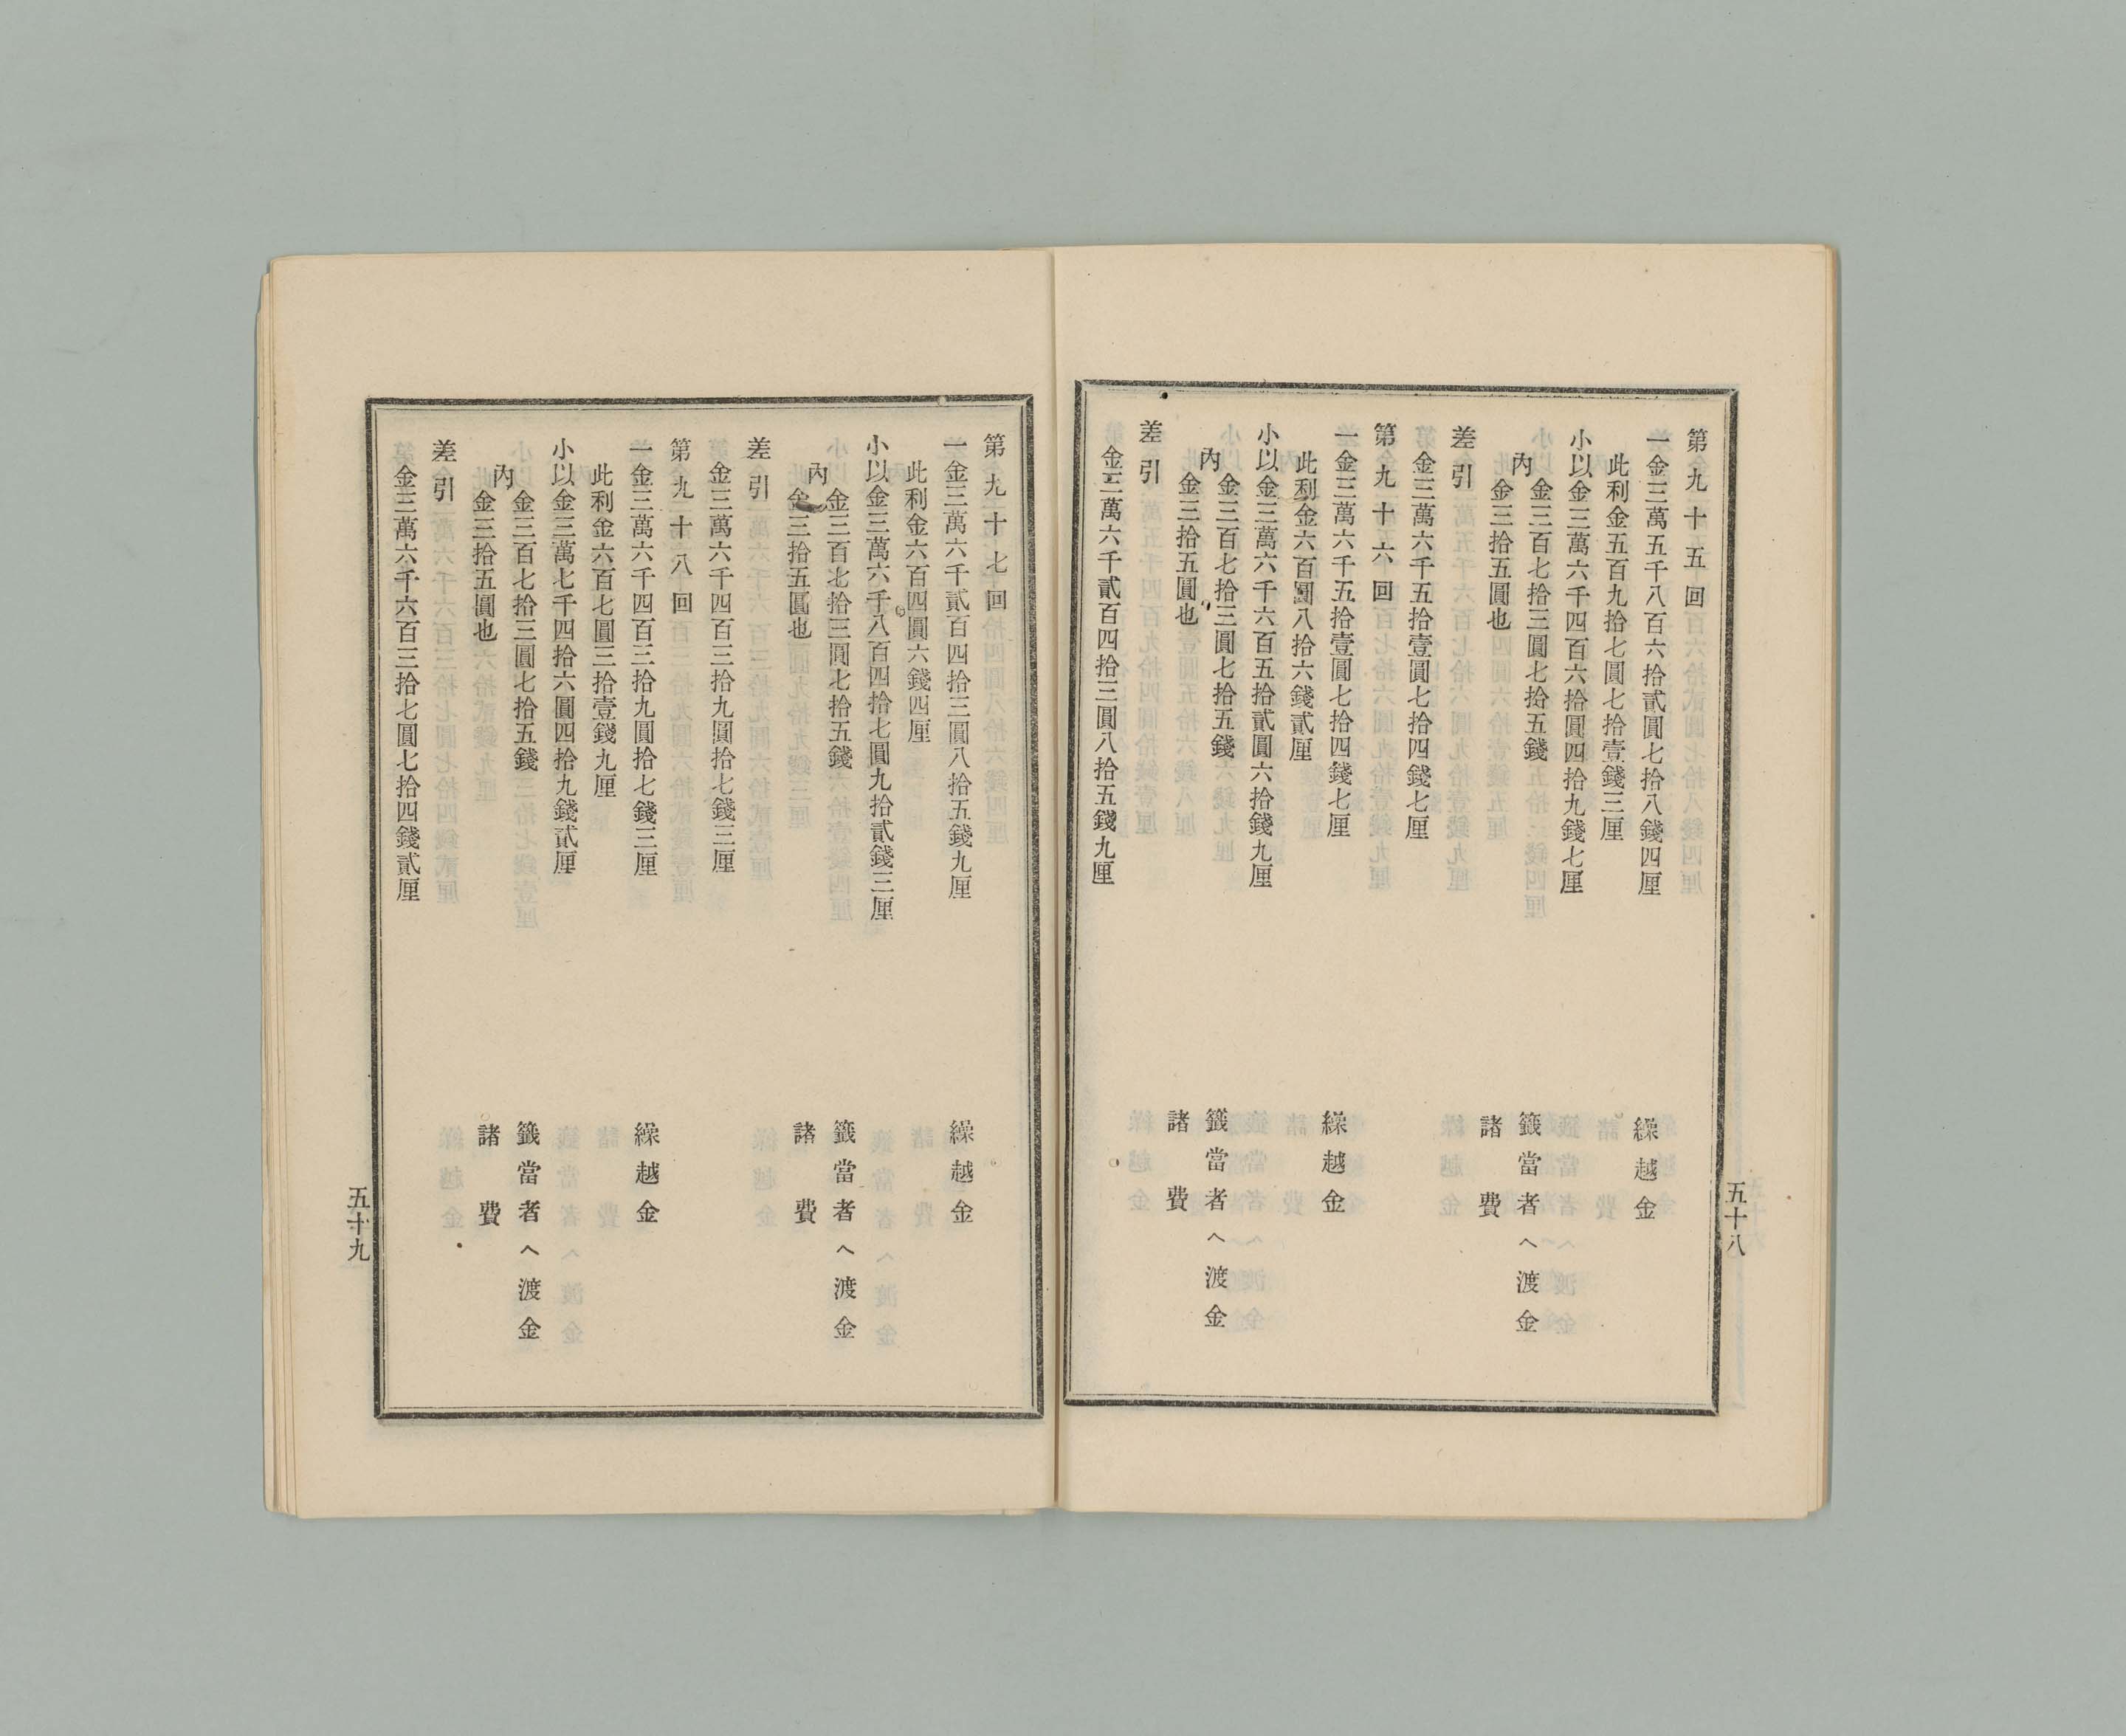 第九十五回
一金三萬五千八百六拾貳圓七拾八錢四厘 繰越金
此利金五百九拾七圓七拾壹錢三厘
小以金三萬六千四百六拾圓四拾九錢七厘
內
金三百七拾三圓七拾五錢 籤當者へ渡金
金三拾五圓也 諸費
差引
金三萬六千五拾壹圓七拾四錢七厘
第九十六回
一金三萬六千五拾壹圓七拾四錢七厘 繰越金
此利金六百圓八拾六錢貳厘
小以金三萬六千六百五拾貳圓六拾錢九厘
內
金三百七拾三圓七拾五錢 籤當者へ渡金
金三拾五圓也 諸費
差引
金三萬六千貳百四拾三圓八拾五錢九厘
五十八
第九十七回
一金三萬六千貳百四拾三圓八拾五錢九厘 繰越金
此利金六百四圓六錢四厘
小以金三萬六千八百四拾七圓九拾貳錢三厘
內
金三百七拾三圓七拾五錢 籤當者へ渡金
金三拾五圓也 諸費
差引
金三萬六千四百三拾九圓拾七錢三厘
第九十八回
一金三萬六千四百三拾九圓拾七錢三厘 繰越金
此利金六百七圓三拾壹錢九厘
小以金三萬七千四拾六圓四拾九錢貳厘
內
金三百七拾三圓七拾五錢 籤當者へ渡金
金三拾五圓也 諸費
差引
金三萬六千六百三拾七圓七拾四錢貳厘
五十九